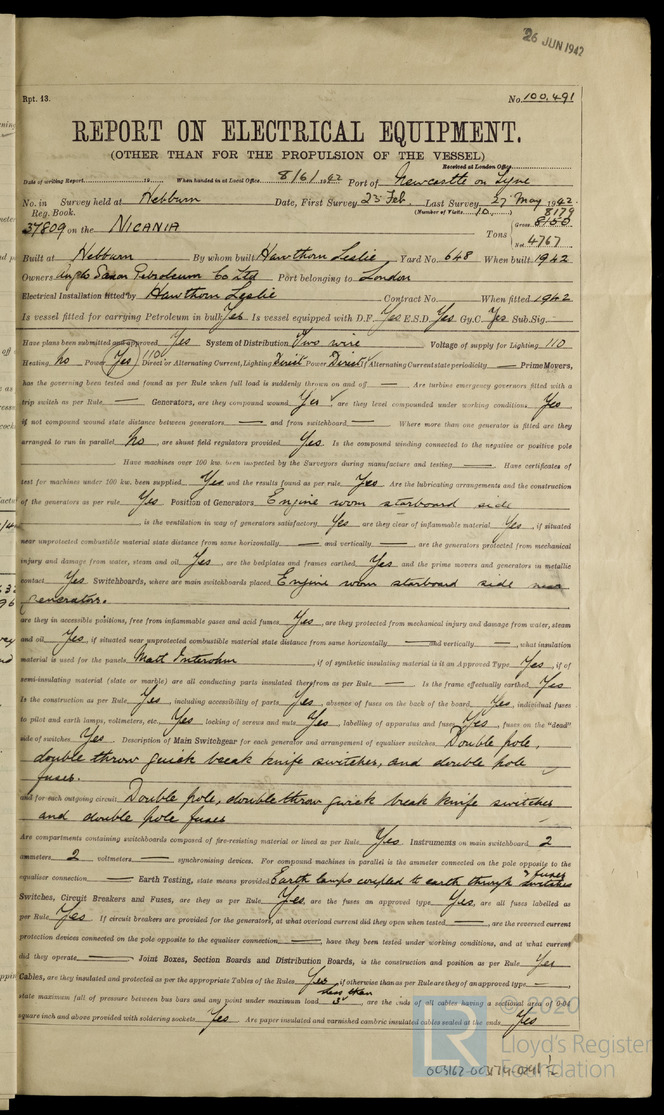 26 JUN 1942
Rpt. 13.
No. 100,491
REPORT ON ELECTRICAL EQUIPMENT.
(OTHER THAN FOR THE PROPULSION OF THE VESSEL)
Received at London Office
Date of writing Report 19 When handed in at Local Office 8/6/1942 Port of Newcastle on Tyne
No. in Survey held at Hebburn Date, First Survey 23 Feb. Last Survey 27 May 1942.
Reg. Book. (Number of Visits 10) 8179
37809 on the NICANIA Tons Gross 8150
Net 4767
Built at Hebburn By whom built Hawthorn Leslie Yard No. 648 When built 1942
Owners Anglo Saxon Petroleum Co Ltd Port belonging to London
Electrical Installation fitted by Hawthorn Leslie Contract No. When fitted 1942
Is vessel fitted for carrying Petroleum in bulk Yes Is vessel equipped with D.F. Yes E.S.D. Yes Gy.C. Yes Sub.Sig.
Have plans been submitted and approved Yes System of Distribution Two wire Voltage of supply for Lighting 110
Heating No Power (Yes) 110 Direct or Alternating Current, Lighting Direct Power Direct Alternating Current state periodicity — Prime Movers,
has the governing been tested and found as per Rule when full load is suddenly thrown on and off — Are turbine emergency governors fitted with a
trip switch as per Rule — Generators, are they compound wound Yes, are they level compounded under working conditions Yes,
if not compound wound state distance between generators — and from switchboard — Where more than one generator is fitted are they
arranged to run in parallel No, are shunt field regulators provided Yes. Is the compound winding connected to the negative or positive pole
Have machines over 100 kw. been inspected by the Surveyors during manufacture and testing — Have certificates of
test for machines under 100 kw. been supplied Yes and the results found as per rule Yes Are the lubricating arrangements and the construction
of the generators as per rule Yes Position of Generators Engine room starboard side
, is the ventilation in way of generators satisfactory Yes are they clear of inflammable material Yes, if situated
near unprotected combustible material state distance from same horizontally — and vertically —, are the generators protected from mechanical
injury and damage from water, steam and oil Yes, are the bedplates and frames earthed Yes and the prime movers and generators in metallic
contact Yes. Switchboards, where are main switchboards placed Engine room starboard side near
generators.
are they in accessible positions, free from inflammable gases and acid fumes Yes, are they protected from mechanical injury and damage from water, steam
and oil Yes, if situated near unprotected combustible material state distance from same horizontally — and vertically —, what insulation
material is used for the panels, if of synthetic insulating material is it an Approved Type Yes, if of
semi-insulating material (slate or marble) are all conducting parts insulated therefrom as per Rule — Is the frame effectually earthed Yes
Is the construction as per Rule Yes, including accessibility of parts Yes, absence of fuses on the back of the board Yes, individual fuses
to pilot and earth lamps, voltmeters, etc. Yes locking of screws and nuts Yes, labelling of apparatus and fuses Yes, fuses on the "dead"
side of switches Yes. Description of Main Switchgear for each generator and arrangement of equaliser switches Double pole,
double throw quick break knife switches, and double pole
fuses.
and for each outgoing circuit Double pole, double throw quick break knife switches
and double pole fuses
Are compartments containing switchboards composed of fire-resisting material or lined as per Rule Yes Instruments on main switchboard 2
ammeters 2 voltmeters — synchronising devices. For compound machines in parallel is the ammeter connected on the pole opposite to the
equaliser connection — Earth Testing, state means provided Earth lamps coupled to earth through switches & fuses
Switches, Circuit Breakers and Fuses, are they as per Rule Yes, are the fuses an approved type Yes, are all fuses labelled as
per Rule Yes If circuit breakers are provided for the generators, at what overload current did they open when tested —, are the reversed current
protection devices connected on the pole opposite to the equaliser connection —, have they been tested under working conditions, and at what current
did they operate — Joint Boxes, Section Boards and Distribution Boards, is the construction and position as per Rule Yes
Cables, are they insulated and protected as per the appropriate Tables of the Rules Yes, if otherwise than as per Rule are they of an approved type —,
state maximum fall of pressure between bus bars and any point under maximum load less than 3v, are the ends of all cables having a sectional area of 0.04
square inch and above provided with soldering sockets Yes Are paper insulated and varnished cambric insulated cables sealed at the ends Yes
© 2020
LR
Lloyd's Register
Foundation
003162-003174-0291 1/2